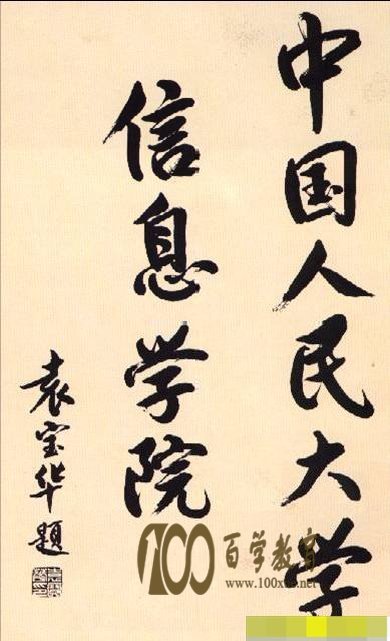 中国人民大学
信息学院
袁宝华题
100百学教育
www.100xue.net